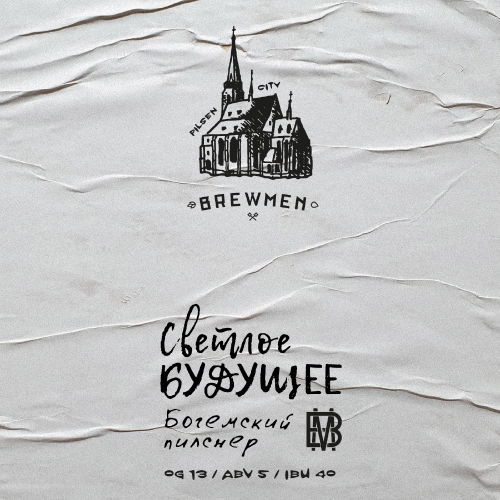 PILSEN CITY
BREWMEN
Светлое
БУДУЩЕЕ
Богемский
пилснер
BM
OG 13 / ABV 5 / IBU 40